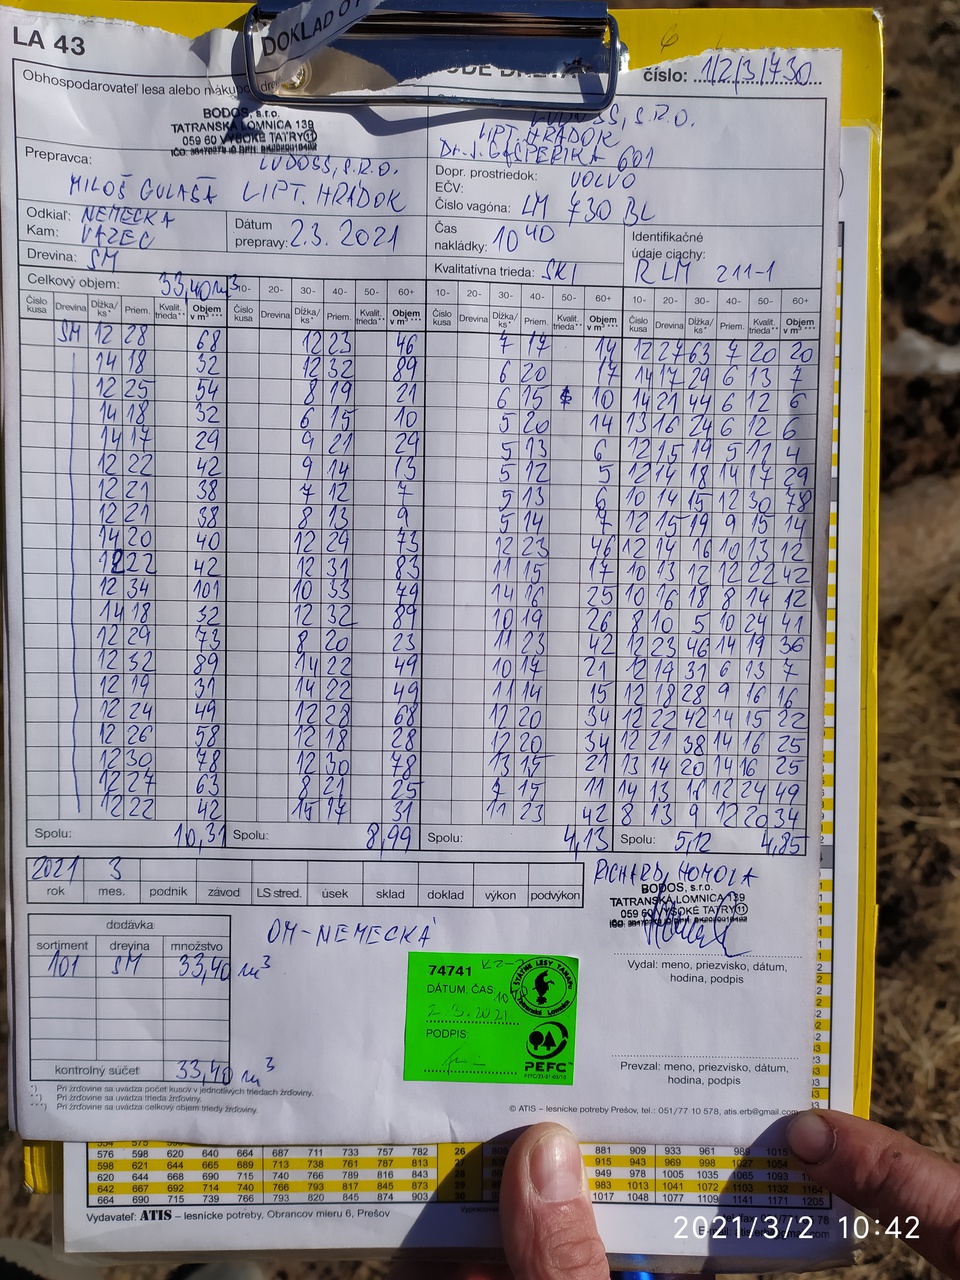 LA 43
DOKLAD O P
číslo: 12/3/730
Obhospodarovateľ lesa alebo nákupc
BODOS, s.r.o.
TATRANSKÁ LOMNICA 139
059 60 VYSOKÉ TATRY 11
LUDOSS, S.R.O.
LIPT. HRÁDOK
Dr. J. GAŠPERÍKA 601
Prepravca:
LUDOSS, S.R.O.
MILOŠ GULAŠA LIPT. HRÁDOK
Dopr. prostriedok: VOLVO
EČV:
Číslo vagóna: LM 730 BL
Odkiaľ: NEMECKÁ
Kam: VAŽEC
Dátum prepravy: 2.3. 2021
Čas nakládky: 10 40
Identifikačné údaje ciachy:
RLM 211-1
Drevina: SM
Kvalitatívna trieda: SKI
Celkový objem: 33,40 m3
10- 20- 30- 40- 50- 60+ 10- 20- 30- 40- 50- 60+ 10- 20- 30- 40- 50- 60+
Číslo kusa Drevina Dĺžka/ ks* Priem. Kvalit. trieda** Objem v m3 *** Číslo kusa Drevina Dĺžka/ ks* Priem. Kvalit. trieda** Objem v m3 *** Číslo kusa Drevina Dĺžka/ ks* Priem. Kvalit. trieda** Objem v m3 *** Číslo kusa Drevina Dĺžka/ ks* Priem. Kvalit. trieda** Objem v m3 ***
SM 12 28 68 12 23 46 7 17 14 12 27 63 7 20 20
14 18 32 12 32 89 6 20 17 14 17 29 6 13 7
12 25 54 8 19 21 6 15 10 14 21 44 6 12 6
14 18 32 6 15 10 5 20 14 13 16 24 6 12 6
14 17 29 9 21 29 5 13 6 12 15 19 5 11 4
12 22 42 9 14 13 5 12 5 12 14 18 14 17 29
12 21 38 7 12 7 5 13 6 10 14 15 12 30 78
12 21 38 8 13 9 5 14 7 12 15 19 9 15 14
14 20 40 12 29 73 12 23 46 12 14 16 10 13 12
12 22 42 12 31 83 11 15 17 10 13 12 12 22 42
12 34 101 10 33 79 14 16 25 10 16 18 8 14 12
14 18 32 12 32 89 10 19 26 8 10 5 10 24 41
12 29 73 8 20 23 11 23 42 12 23 46 14 19 36
12 32 89 14 22 49 10 17 21 12 19 31 6 13 7
12 19 31 14 22 49 11 14 15 12 18 28 9 16 16
12 24 49 12 28 68 12 20 34 12 22 42 14 15 22
12 26 58 12 18 28 12 20 34 12 21 38 14 16 25
12 30 78 12 30 78 13 15 21 13 14 20 14 16 25
12 27 63 8 21 25 7 15 11 14 13 16 12 24 49
12 22 42 15 17 31 11 23 42 8 13 9 12 20 34
Spolu: 10,31 Spolu: 8,99 Spolu: 4,13 Spolu: 5,12 4,85
2021 3
rok mes. podnik závod LS stred. úsek sklad doklad výkon podvýkon
RICHARD HOMOLA
BODOS, s.r.o.
TATRANSKÁ LOMNICA 139
059 60 VYSOKÉ TATRY 11
dodávka
sortiment drevina množstvo
101 SM 33,40 m3
OM-NEMECKÁ
kontrolný súčet 33,40 m3
74741
DÁTUM, ČAS: 10
2.3.2021
PODPIS:
ŠTÁTNE LESY TANAPu
Tatranská Lomnica
PEFC
Vydal: meno, priezvisko, dátum,
hodina, podpis
Prevzal: meno, priezvisko, dátum,
hodina, podpis
*) Pri žrďovine sa uvádza počet kusov v jednotlivých triedach žrďoviny.
**) Pri žrďovine sa uvádza trieda žrďoviny.
***) Pri žrďovine sa uvádza celkový objem triedy žrďoviny.
© ATIS – lesnícke potreby Prešov, tel.: 051/77 10 578, atis.erb@gmail.com
576 598 620 640 664 687 711 733 757 782 26 881 909 933 961
598 621 644 665 689 713 738 761 787 813 27 915 943 969 998
620 644 668 690 715 740 766 789 816 843 28 949 978 1005 1035 1065 1093
642 667 692 714 740 766 793 817 845 873 983 1013 1041 1072 1103 1132 1164
664 690 715 739 766 793 820 845 874 903 1017 1048 1077 1109 1141 1171 1205
Vydavateľ: ATIS – lesnícke potreby, Obrancov mieru 6, Prešov
2021/3/2 10:42